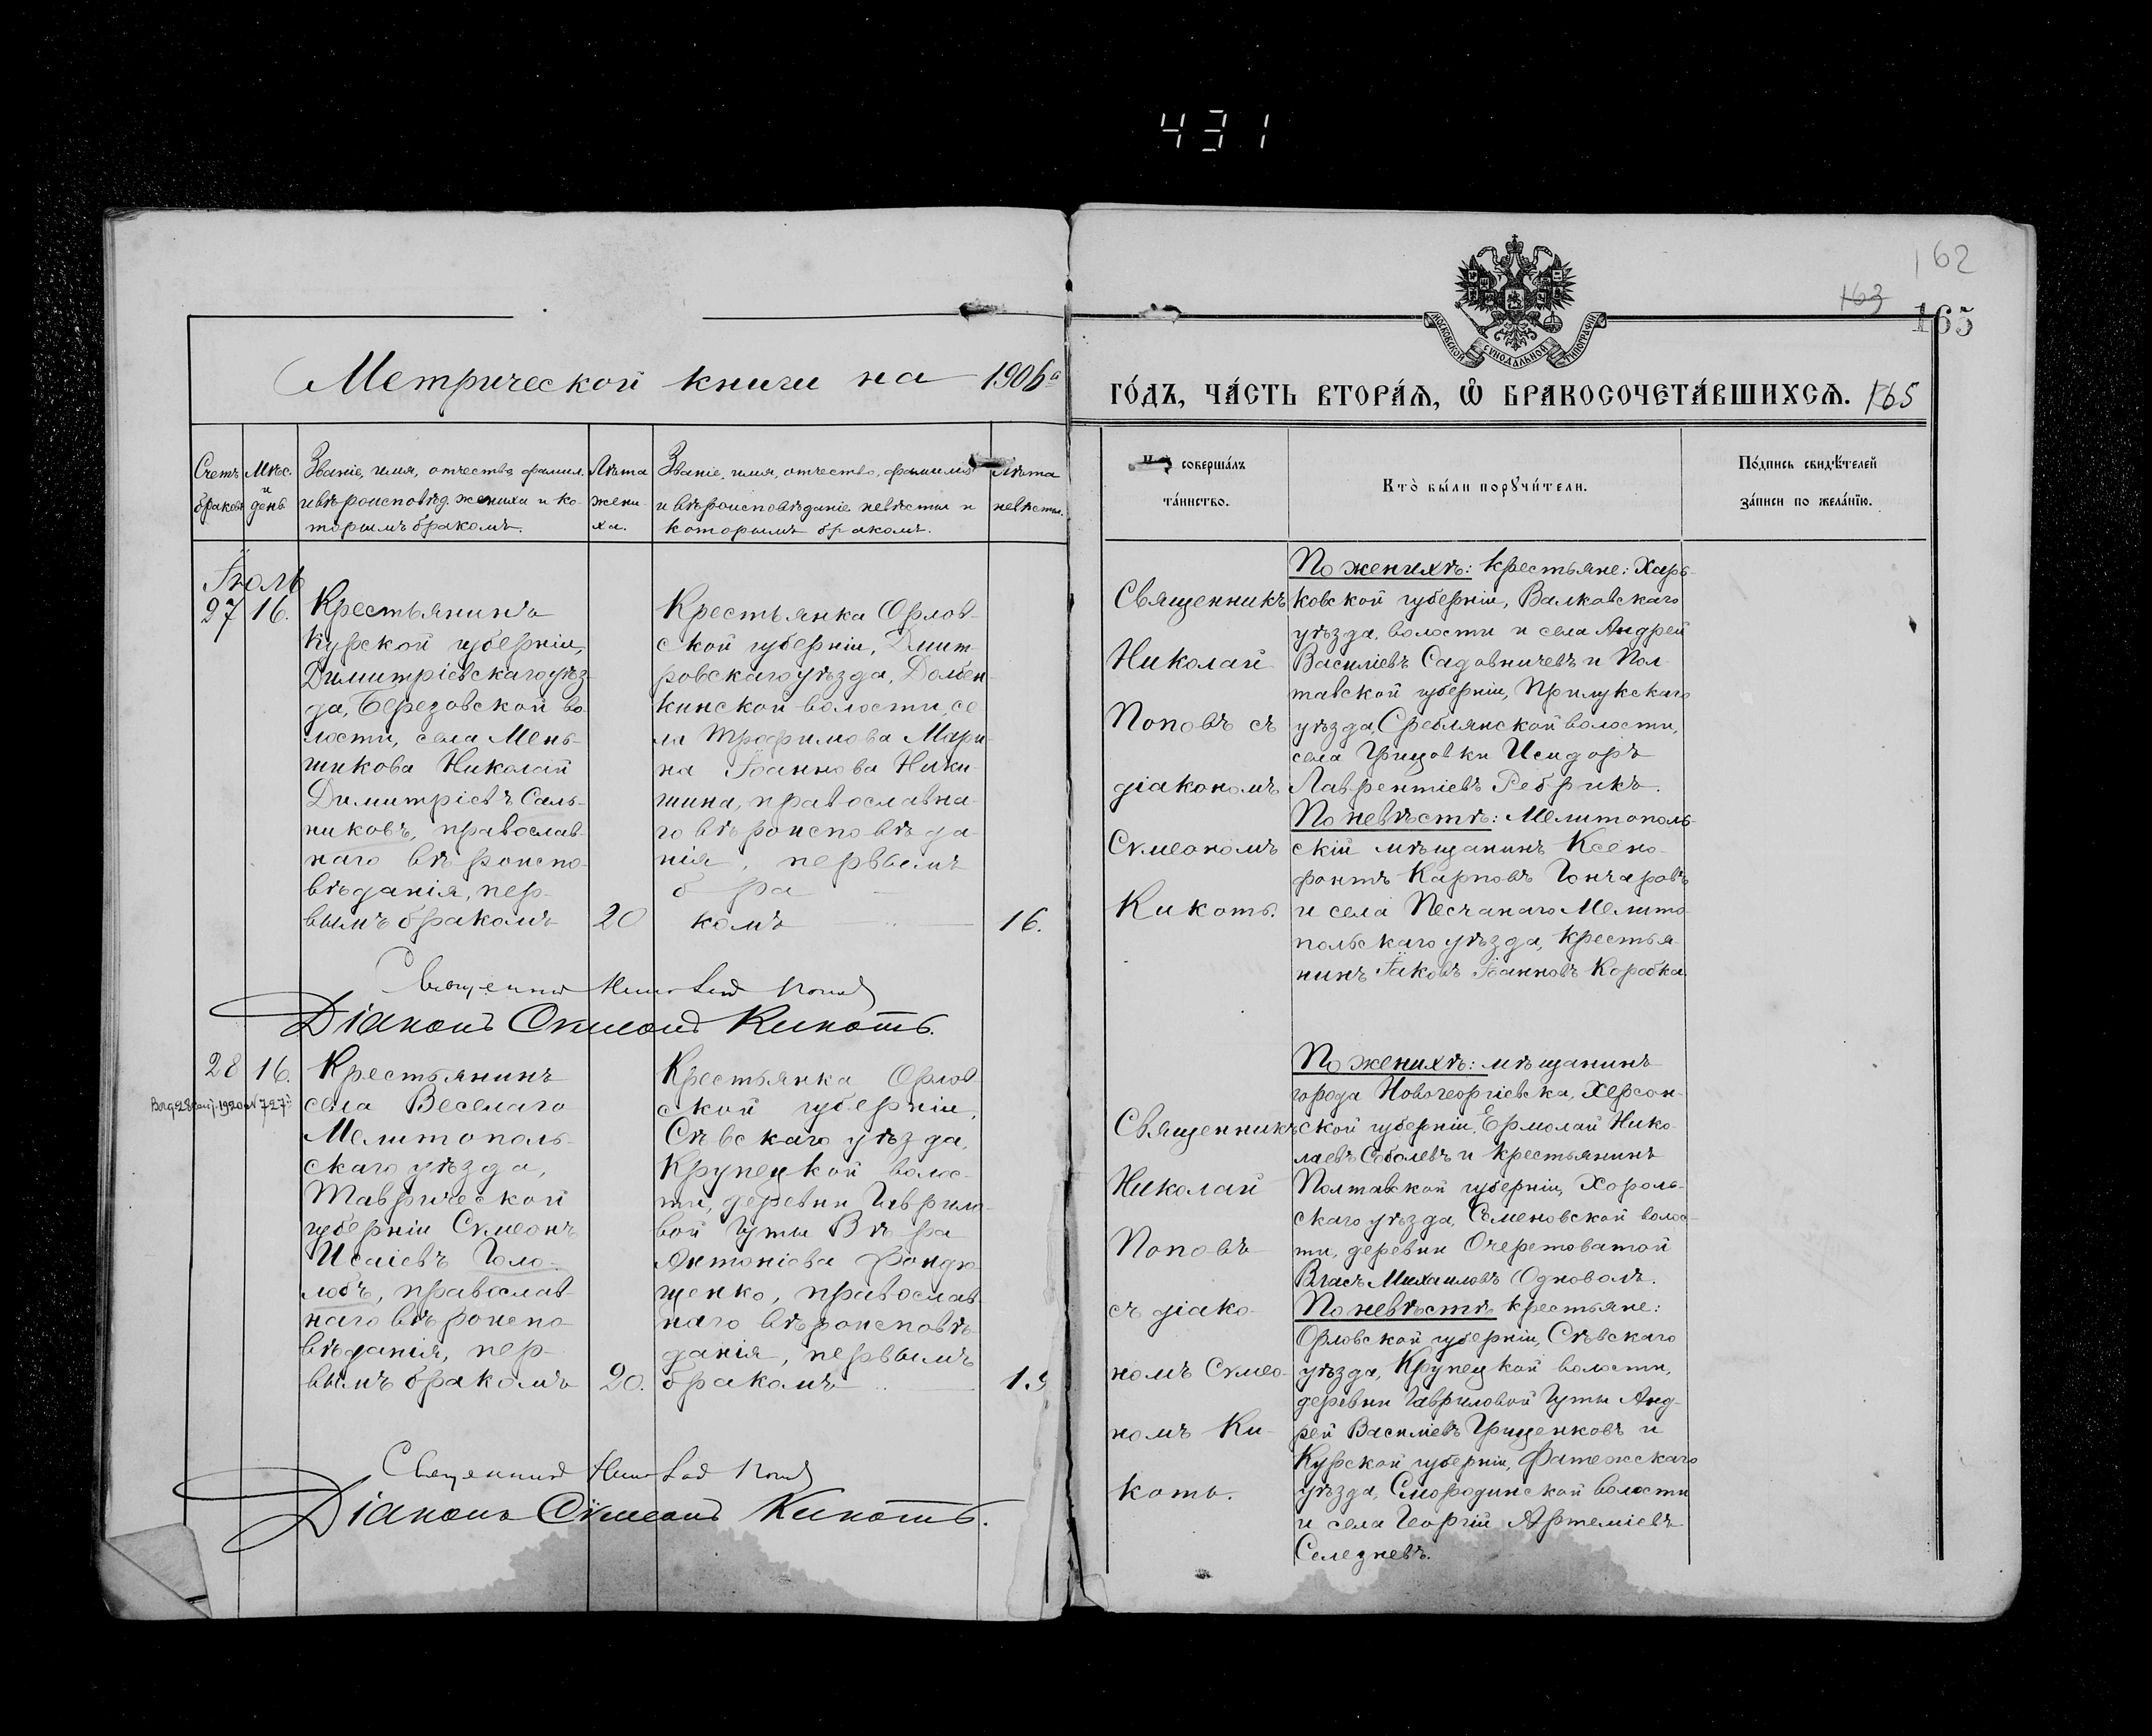 431
162
163
165
Метрической книги на 1906й
ГО́ДЪ, ЧА́СТЬ ВТОРА́Ѧ, Ѽ БРАКОСОЧЕТА́ВШИХСѦ. 165
МОСКОВСКОЙ СѴНОДАЛЬНОЙ ТИПОГРАФІИ
Счетъ
браковъ
Мѣс.
и
день
Званіе, имя, отчество, фамил.
и вѣроисповѣд. жениха и ко-
торымъ бракомъ.
Лѣта
жени-
ха.
Званіе, имя, отчество, фамилія
и вѣроисповѣданіе невѣсты и
которымъ бракомъ.
Лѣта
невѣсты.
совершáлъ
тáинство.
Кто̀ бы́ли порꙋчи́тели.
По́дпись свидѣ́телей
зáписи по желáнїю.
Іюль
27
16.
Крестьянинъ
Курской губерніи,
Димитріевскаго уѣз-
да, Березовской во-
лости, села Мень-
шикова Николай
Димитріевъ Саль-
никовъ, православ-
наго вѣроиспо-
вѣданія, пер-
вымъ бракомъ
20
Крестьянка Орлов-
ской губерніи, Дмит-
ровскаго уѣзда, Домен-
кинской волости, се
ла Трофимова Мари-
на Іоаннова Ники-
шина, православна-
го вѣроисповѣда-
нія, первымъ
бра
комъ
16.
Священникъ
Николай
Поповъ съ
діакономъ
Сѵмеономъ
Кикоть.
По женихѣ: крестьяне: Харь-
ковской губерніи, Валковскаго
уѣзда, волости и села Андрей
Василіевъ Садовничевъ и Пол-
тавской губерніи, Прилукскаго
уѣзда, Среблянской волости,
села Грицовки Исидоръ
Лаврентіевъ Ребрикъ.
По невѣстѣ: Мелитополь-
скій мѣщанинъ Ксено-
фонтъ Карповъ Гончаровъ
и села Песчанаго Мелито-
польскаго уѣзда, крестья-
нинъ Іаковъ Іоанновъ Коробка.
Священникъ Николай Поповъ
Діаконъ Сѵмеонъ Кикоть.
28
16.
Крестьянинъ
села Веселаго
Мелитополь-
скаго уѣзда,
Таврической
губерніи Сѵмеонъ
Исаіевъ Голо-
лобъ, православ-
наго вѣроиспо-
вѣданія, пер-
вымъ бракомъ
20.
Крестьянка Орлов-
ской губерніи,
Сѣвскаго уѣзда,
Крупецкой волос-
ти, деревни Гаврило-
вой Гуты Вѣра
Антоніева Фондю-
щенко, православ-
наго вѣроисповѣ-
данія, первымъ
бракомъ
19
Священникъ
Николай
Поповъ
съ діако-
номъ Сѵмео-
номъ Ки-
коть.
По женихѣ: мѣщанинъ
города Новогеоргіевска, Херсон-
ской губерніи, Ермолай Нико-
лаевъ Соболевъ и крестьянинъ
Полтавской губерніи, Хороль-
скаго уѣзда, Семеновской волос-
ти, деревни Очеретоватой
Власъ Михаиловъ Одноволъ.
По невѣстѣ крестьяне:
Орловской губерніи, Сѣвскаго
уѣзда, Крупецкой волости,
деревни Гавриловой Гуты Анд-
рей Василіевъ Грищенковъ и
Курской губерніи, Фатежскаго
уѣзда, Смородинской волости
и села Георгій Артеміевъ
Селезневъ.
Священникъ Николай Поповъ
Діаконъ Сѵмеонъ Кикоть.